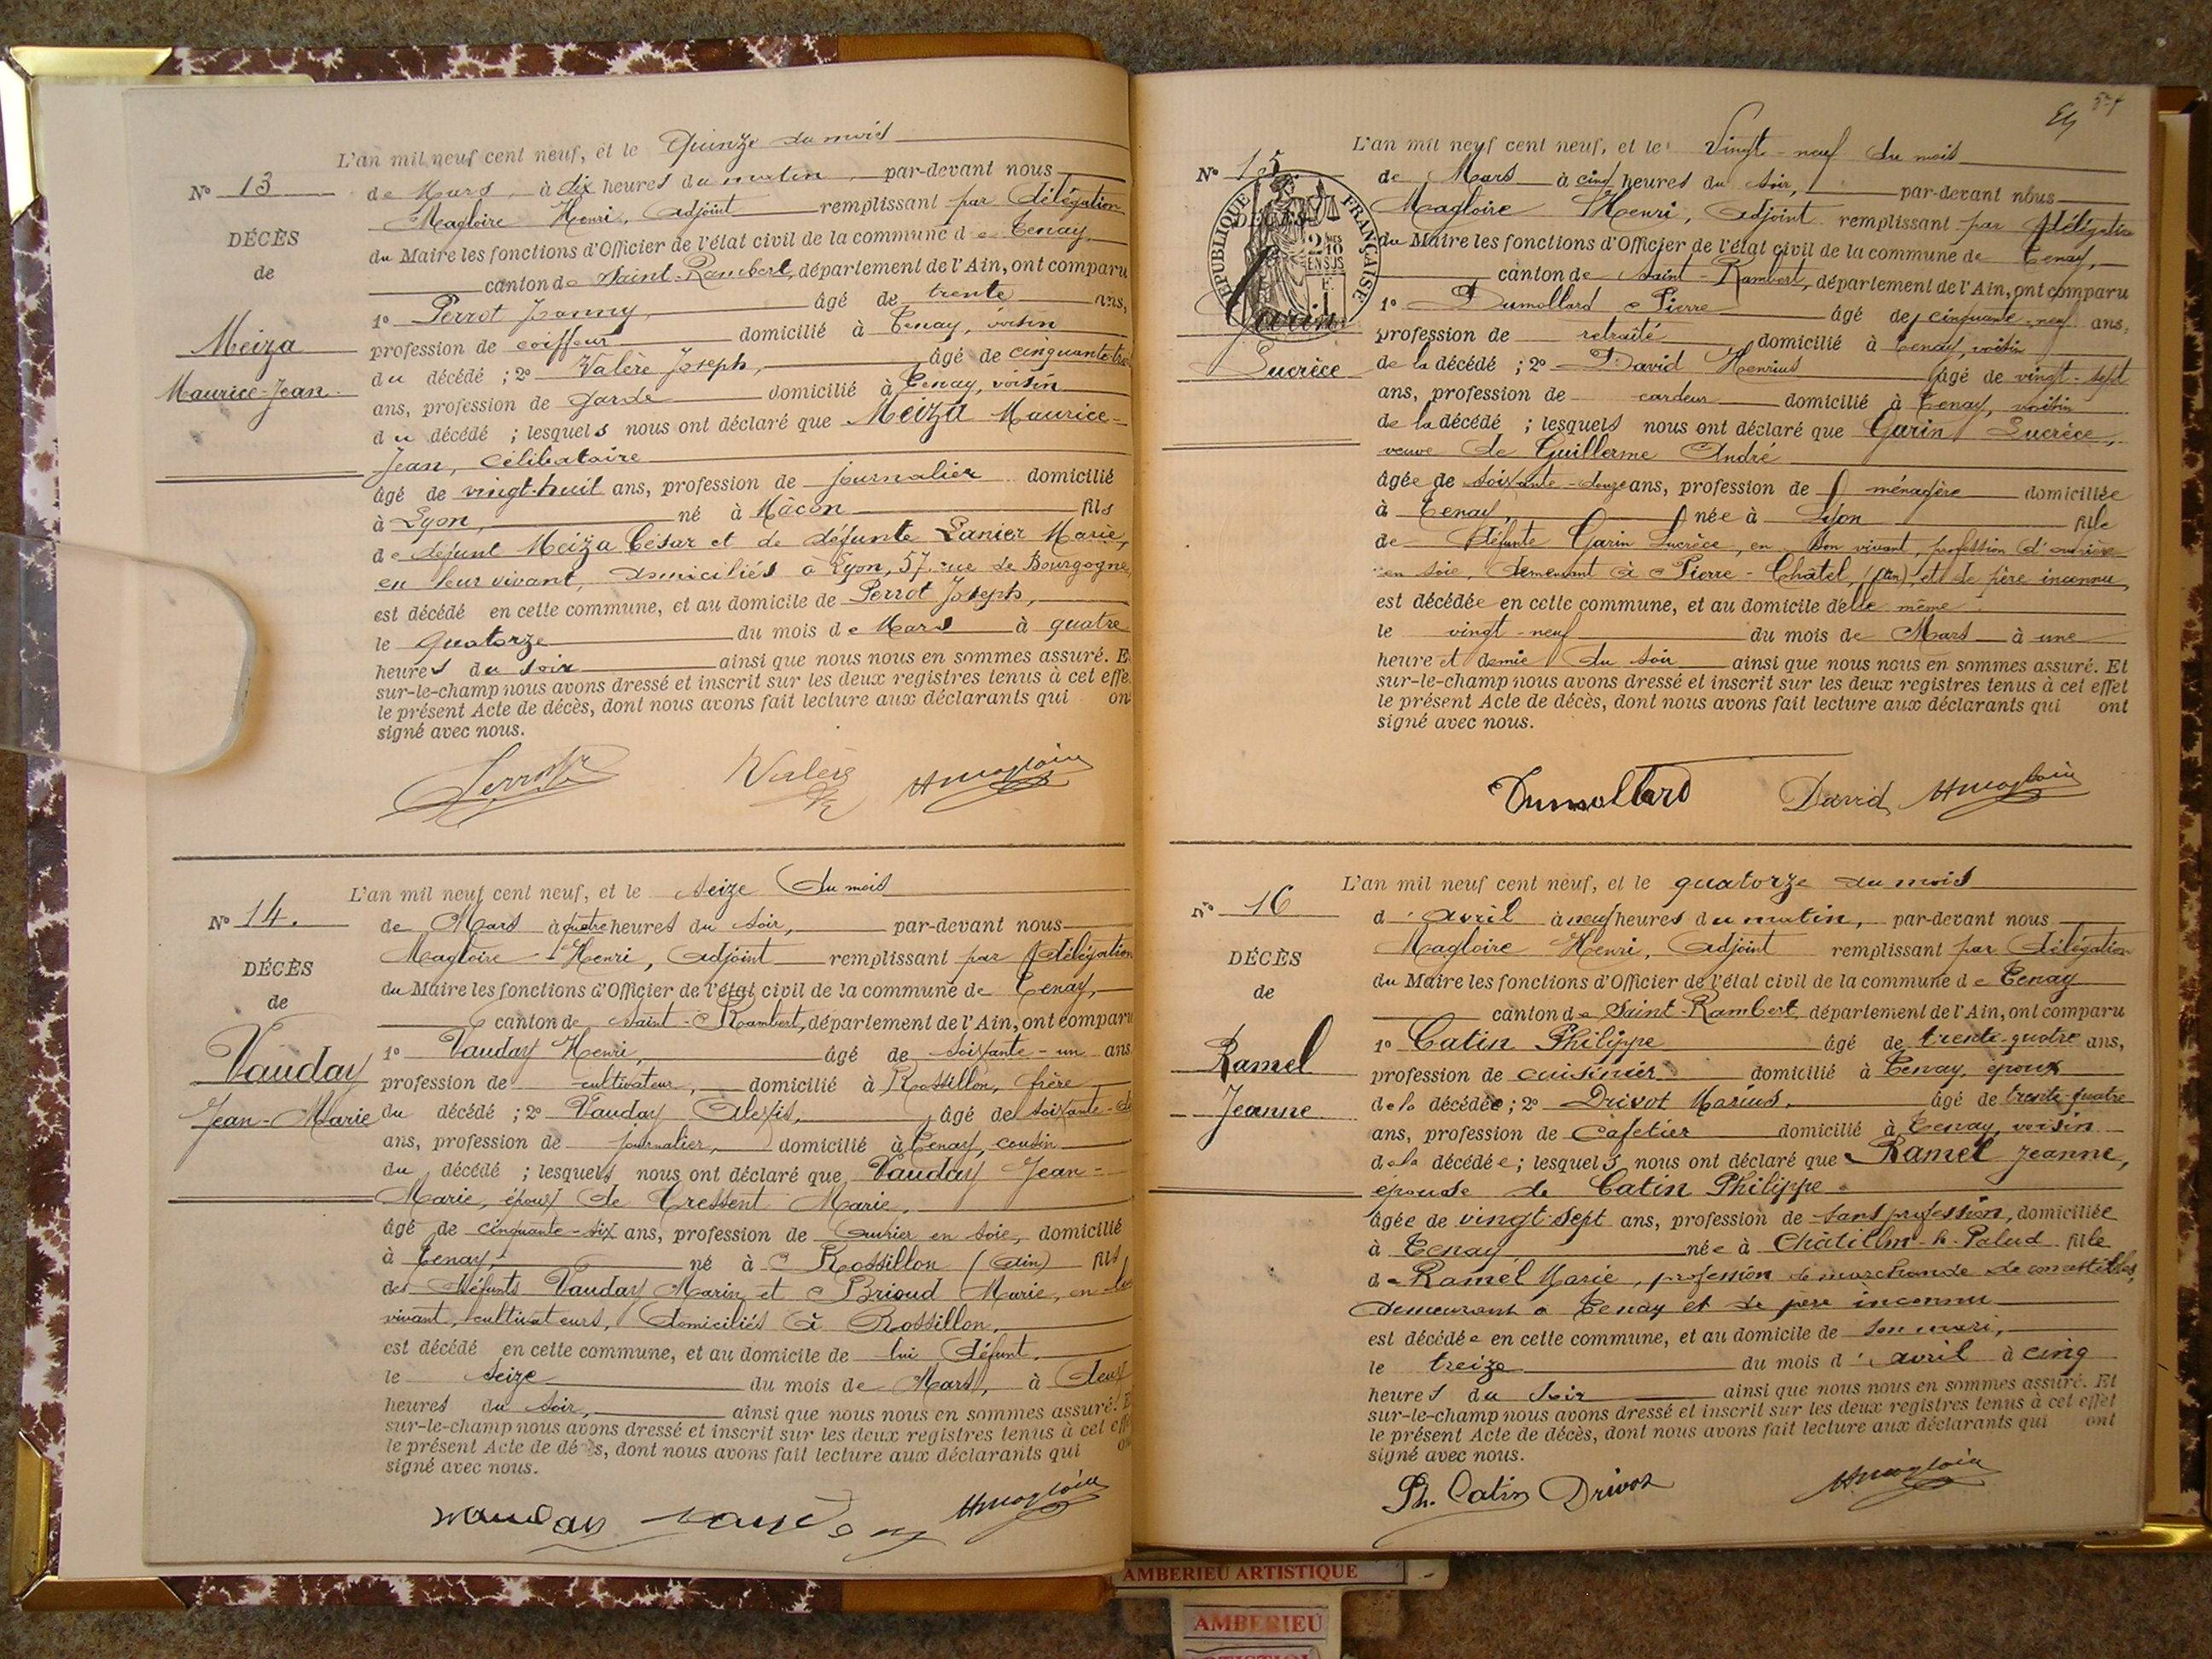 L'an mil neuf cent neuf, et le Quinze du mois
Nº 13
de Mars, à dix heures du matin par-devant nous
Magloire Henri, adjoint remplissant par délégation
DÉCÈS
du Maire les fonctions d'Officier de l'état civil de la commune de Tenay
de
canton de Saint-Rambert, département de l'Ain, ont comparu
1º Perrot Joanny, âgé de trente ans,
Meiza
profession de coiffeur domicilié à Tenay, voisin
du décédé ; 2º Valère Joseph, âgé de cinquante
Maurice-Jean
ans, profession de garde domicilié à Tenay, voisin
du décédé ; lesquels nous ont déclaré que Meiza Maurice-
Jean, célibataire
âgé de vingt-huit ans, profession de journalier domicilié
à Lyon, né à Mâcon fils
de défunt Meiza César et de défunte Lanier Marie,
en leur vivant, domiciliés à Lyon, 57 rue de Bourgogne,
est décédé en cette commune, et au domicile de Perrot Joseph,
le quatorze du mois de Mars à quatre
heures du soir ainsi que nous nous en sommes assuré. E
sur-le-champ nous avons dressé et inscrit sur les deux registres tenus à cet effe
le présent Acte de décès, dont nous avons fait lecture aux déclarants qui on
signé avec nous.
Perrot Valère HMagloire
L'an mil neuf cent neuf, et le seize du mois
Nº 14.
de Mars à quatre heures du soir, par-devant nous
Magloire Henri, adjoint remplissant par délégation
DÉCÈS
du Maire les fonctions d'Officier de l'état civil de la commune de Tenay,
de
canton de Saint-Rambert, département de l'Ain, ont comparu
Vauday
1º Vauday Henri, âgé de soixante-un ans
profession de cultivateur, domicilié à Rossillon, frère
Jean-Marie
du décédé ; 2º Vauday Alexis, âgé de soixante-
ans, profession de journalier, domicilié à Tenay, cousin
du décédé ; lesquels nous ont déclaré que Vauday Jean-
Marie, époux de Cressent Marie,
âgé de cinquante-six ans, profession de ouvrier en soie, domicilié
à Tenay, né à Rossillon (Ain) fils
des défunts Vauday Marin et Brioud Marie, en
vivant, cultivateurs, domiciliés à Rossillon,
est décédé en cette commune, et au domicile de lui défunt,
le seize du mois de Mars, à deux
heures du soir, ainsi que nous nous en sommes assuré. E
sur-le-champ nous avons dressé et inscrit sur les deux registres tenus à cet eff
le présent Acte de décès, dont nous avons fait lecture aux déclarants qui on
signé avec nous.
Vauday Vauday HMagloire
L'an mil neuf cent neuf, et le Vingt-neuf du mois
Nº 15
de Mars à cinq heures du soir, par-devant nous
Magloire Henri, adjoint remplissant par délégation
RÉPUBLIQUE FRANÇAISE
du Maire les fonctions d'Officier de l'état civil de la commune de Tenay,
canton de Saint-Rambert, département de l'Ain, ont comparu
1º Dumollard Pierre âgé de cinquante-neuf ans,
Garin
profession de retraité domicilié à Tenay, voisin
Lucrèce
de la décédé ; 2º David Henrius âgé de vingt-sept
ans, profession de cardeur domicilié à Tenay, voisin
de la décédé ; lesquels nous ont déclaré que Garin Lucrèce,
veuve de Guillerme André
âgée de soixante-douze ans, profession de ménagère domiciliée
à Tenay, née à Lyon fille
de défunte Garin Lucrèce, en son vivant, profession d'ouvrière
en soie, demeurant à Pierre-Châtel, (Ain), et de père inconnu,
est décédée en cette commune, et au domicile d'elle même
le vingt-neuf du mois de Mars à une
heure et demie du soir ainsi que nous nous en sommes assuré. Et
sur-le-champ nous avons dressé et inscrit sur les deux registres tenus à cet effet
le présent Acte de décès, dont nous avons fait lecture aux déclarants qui ont
signé avec nous.
Dumollard David HMagloire
L'an mil neuf cent neuf, et le quatorze du mois
Nº 16
d'avril à neuf heures du matin, par-devant nous
Magloire Henri, adjoint remplissant par délégation
DÉCÈS
du Maire les fonctions d'Officier de l'état civil de la commune de Tenay
de
canton de Saint-Rambert, département de l'Ain, ont comparu
Ramel
1º Catin Philippe âgé de trente-quatre ans,
profession de cuisinier domicilié à Tenay, époux
Jeanne
de la décédée ; 2º Drivot Marius, âgé de trente-quatre
ans, profession de cafetier domicilié à Tenay, voisin
de la décédée ; lesquels nous ont déclaré que Ramel Jeanne,
épouse de Catin Philippe
âgée de vingt-sept ans, profession de sans profession, domiciliée
à Tenay née à Châtillon-la-Palud fille
de Ramel Marie, profession de marchande de comestibles,
demeurant à Tenay et de père inconnu
est décédée en cette commune, et au domicile de son mari,
le treize du mois d'avril à cinq
heures du soir ainsi que nous nous en sommes assuré. Et
sur-le-champ nous avons dressé et inscrit sur les deux registres tenus à cet effet
le présent Acte de décès, dont nous avons fait lecture aux déclarants qui ont
signé avec nous.
Ph. Catin Drivot HMagloire
AMBERIEU ARTISTIQUE
AMBERIEU